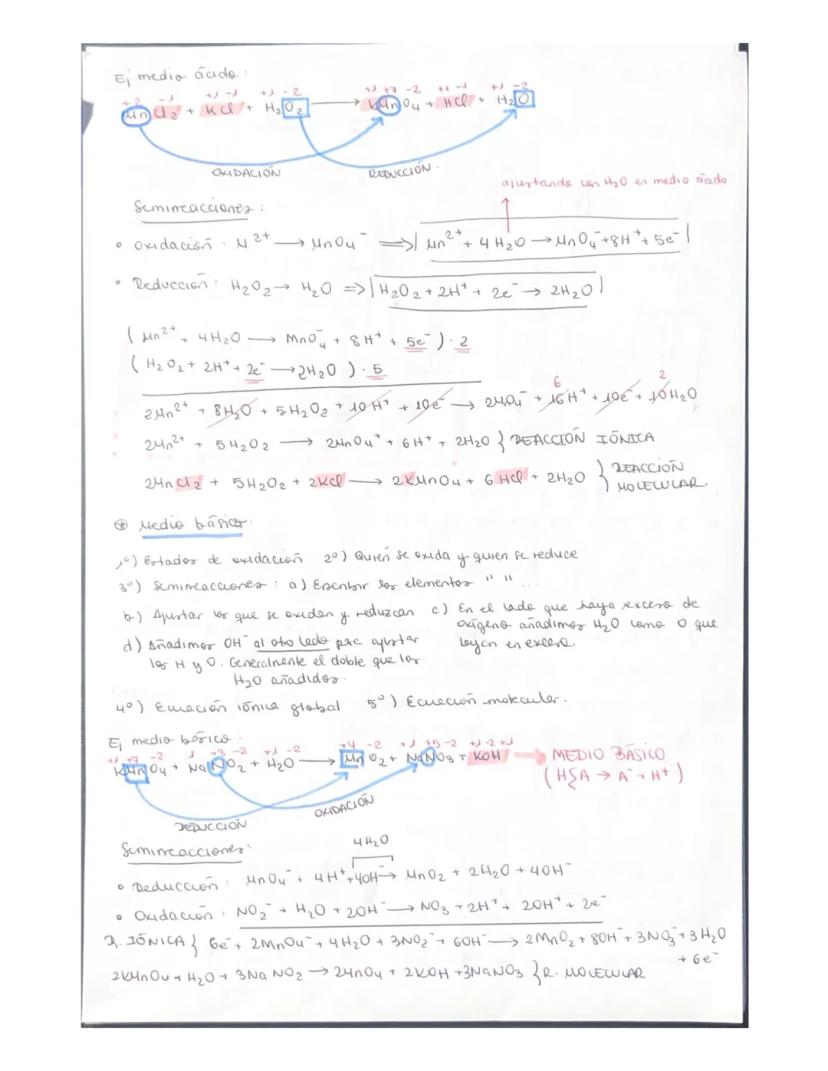 Ej medio ácido:
+2 -1 +1 -1 +1 -2 +1 +7 -2 +1 -1 +1 -2
MnCl₂ + KCl + H₂O₂ ⟶ KMnO₄ + HCl + H₂O
OXIDACIÓN REDUCCIÓN.
ajustando con H₂O en medio ácido
Semirreacciones:
• Oxidación: M²⁺ ⟶ MnO₄⁻ ⟹ | Mn²⁺ + 4H₂O ⟶ MnO₄⁻ + 8H⁺ + 5e⁻ |
• Reducción: H₂O₂ → H₂O ⟹ | H₂O₂ + 2H⁺ + 2e⁻ → 2H₂O |
( Mn²⁺ + 4H₂O ⟶ MnO₄⁻ + 8H⁺ + 5e⁻ ) · 2
( H₂O₂ + 2H⁺ + 2e⁻ ⟶ 2H₂O ) · 5
6 2
2Mn²⁺ + 8H₂O + 5H₂O₂ + 10H⁺ + 10e⁻ ⟶ 2MnO₄⁻ + 16H⁺ + 10e⁻ + 10H₂O
2Mn²⁺ + 5H₂O₂ ⟶ 2MnO₄⁺ + 6H⁺ + 2H₂O } REACCIÓN IÓNICA
2MnCl₂ + 5H₂O₂ + 2KCl ⟶ 2KMnO₄ + 6HCl + 2H₂O } REACCIÓN MOLECULAR.
⊛ Medio básico:
1º) Estados de oxidación 2º) Quién se oxida y quien se reduce
3º) Semirreacciones: a) Escribir los elementos " " ...
b) Ajustar los que se oxidan y reduzcan c) En el lado que haya exceso de
oxígeno añadimos H₂O como O que
hayan en exceso.
d) Añadimos OH⁻ al otro lado para ajustar
los H y O. Generalmente el doble que los
H₂O añadidos.
4º) Ecuación iónica global 5º) Ecuación molecular.
Ej medio básico.
+1 +7 -2 +1 +3 -2 +1 -2 +4 -2 +1 +5 -2 +1 -2 +1
KMnO₄ + NaNO₂ + H₂O ⟶ MnO₂ + NaNO₃ + KOH → MEDIO BÁSICO
(HA → A⁻ + H⁺)
REDUCCIÓN OXIDACIÓN
Semirreacciones:
4H₂O
• Reducción: MnO₄⁻ + 4H⁺ + 4OH⁻ → MnO₂ + 2H₂O + 4OH⁻
• Oxidación: NO₂⁻ + H₂O + 2OH⁻ ⟶ NO₃ + 2H⁺ + 2OH⁺ + 2e⁻
R. IÓNICA } 6e⁻ + 2MnO₄⁻ + 4H₂O + 3NO₂⁻ + 6OH⁻ ⟶ 2MnO₂ + 8OH⁻ + 3NO₃⁻ + 3H₂O
+ 6e⁻
2KMnO₄ + H₂O + 3NaNO₂ → 2MnO₄ + 2KOH + 3NaNO₃ } R. MOLECULAR